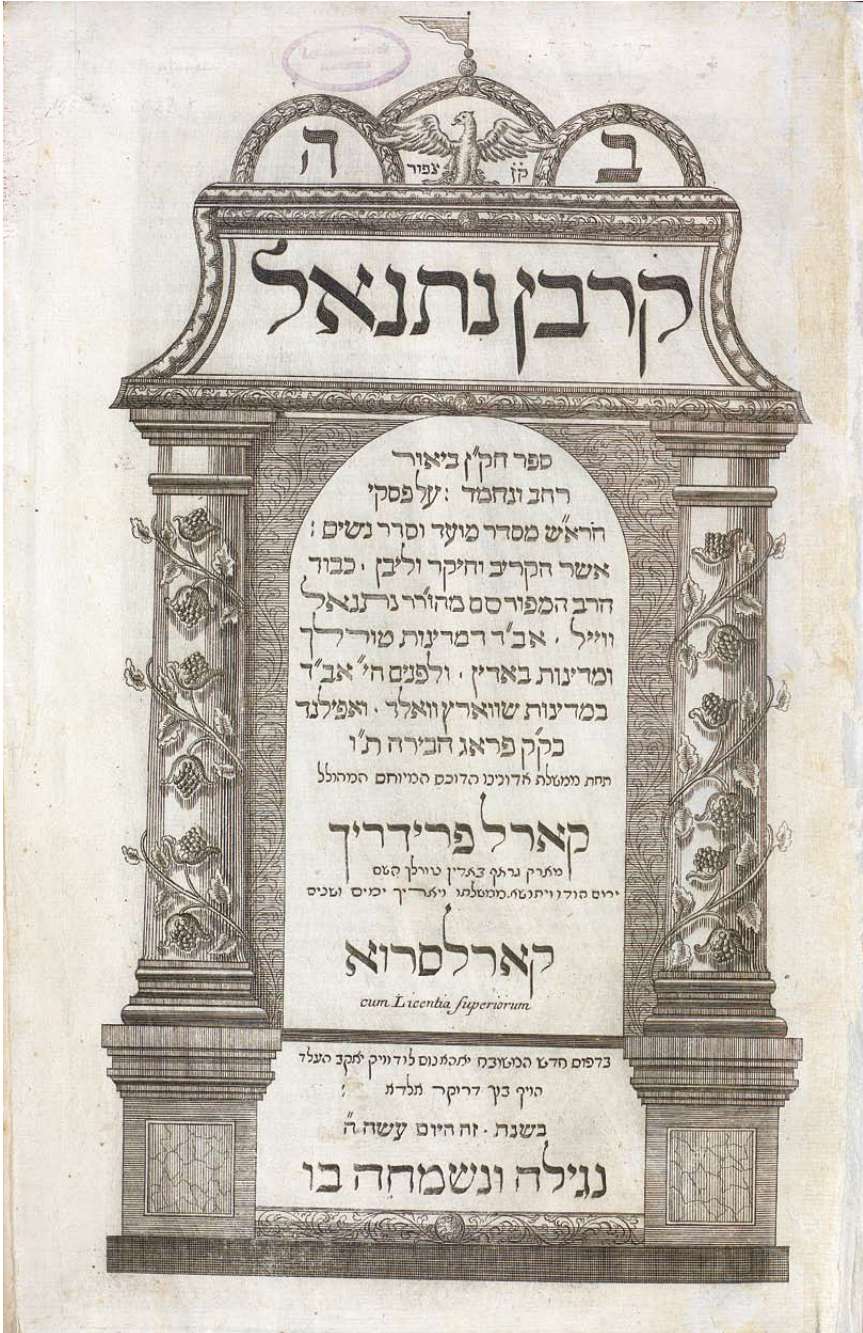 ב ה
קן צפור
קרבן נתנאל
ספר הק"ן ביאור
רחב ונחמד : על פסקי
הרא"ש מסדר מועד וסדר נשים :
אשר הקריב וחיקר וליבן · כבוד
הרב המפורסם מהו'רר נתנאל
ווייל · אב"ד דמדינות טורלך
ומדינות באדין · ולפנים הי' אב"ד
במדינות שווארץ וואלד · ואפילנד
בק"ק פראג הבירה ת"ו
תחת ממשלת אדונינו הדוכס המיוחס המהולל
קארל פרידריך
מארק גראף באדין טורלך השם
ירום הודו ויתנשא ממשלתו ויאריך ימים ושנים
קארלסרוא
cum Licentia superiorum
בדפוס חדש המשובח יאהאנום לודוויק יאקב העלד
הויף בוך דריקר אלדא :
בשנת · זה היום עשה ה"
נגילה ונשמחה בו